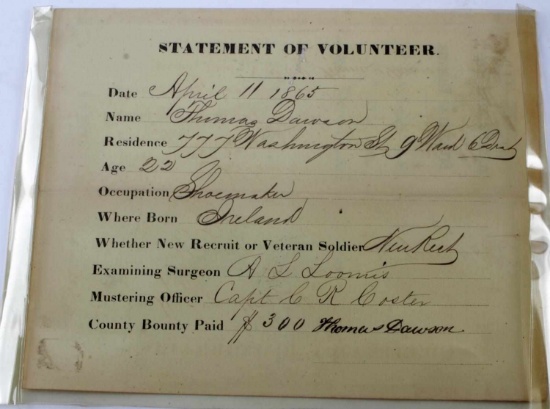 STATEMENT OF VOLUNTEER.
Date April 11 1865
Name Thomas Dawson
Residence 777 Washington St 9 Ward 6 Dist
Age 22
Occupation Shoemaker
Where Born Ireland
Whether New Recruit or Veteran Soldier New Rect
Examining Surgeon A L Loomis
Mustering Officer Capt C R Coster
County Bounty Paid $300 Thomas Dawson